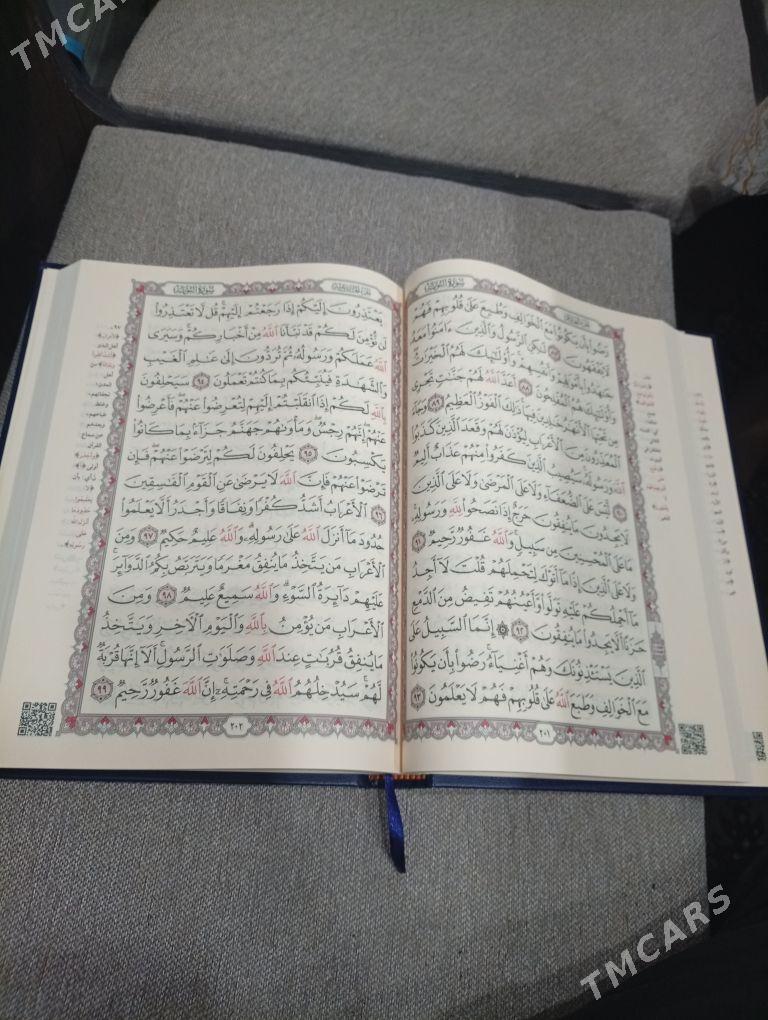 TMCARS
سورة التوبة
رَضُوا۟ بِأَن يَكُونُوا۟ مَعَ ٱلْخَوَالِفِ وَطُبِعَ عَلَىٰ قُلُوبِهِمْ فَهُمْ
لَا يَفْقَهُونَ ٨٧ لَٰكِنِ ٱلرَّسُولُ وَٱلَّذِينَ ءَامَنُوا۟ مَعَهُۥ
جَٰهَدُوا۟ بِأَمْوَٰلِهِمْ وَأَنفُسِهِمْ ۚ وَأُو۟لَٰٓئِكَ لَهُمُ ٱلْخَيْرَٰتُ ۖ
وَأُو۟لَٰٓئِكَ هُمُ ٱلْمُفْلِحُونَ ٨٨ أَعَدَّ ٱللَّهُ لَهُمْ جَنَّٰتٍ تَجْرِى
مِن تَحْتِهَا ٱلْأَنْهَٰرُ خَٰلِدِينَ فِيهَا ۚ ذَٰلِكَ ٱلْفَوْزُ ٱلْعَظِيمُ ٨٩ وَجَآءَ
ٱلْمُعَذِّرُونَ مِنَ ٱلْأَعْرَابِ لِيُؤْذَنَ لَهُمْ وَقَعَدَ ٱلَّذِينَ كَذَبُوا۟
ٱللَّهَ وَرَسُولَهُۥ ۚ سَيُصِيبُ ٱلَّذِينَ كَفَرُوا۟ مِنْهُمْ عَذَابٌ أَلِيمٌ
٩٠ لَّيْسَ عَلَى ٱلضُّعَفَآءِ وَلَا عَلَى ٱلْمَرْضَىٰ وَلَا عَلَى ٱلَّذِينَ
لَا يَجِدُونَ مَا يُنفِقُونَ حَرَجٌ إِذَا نَصَحُوا۟ لِلَّهِ وَرَسُولِهِۦ ۚ
مَا عَلَى ٱلْمُحْسِنِينَ مِن سَبِيلٍ ۚ وَٱللَّهُ غَفُورٌ رَّحِيمٌ ٩١
وَلَا عَلَى ٱلَّذِينَ إِذَا مَآ أَتَوْكَ لِتَحْمِلَهُمْ قُلْتَ لَآ أَجِدُ
مَآ أَحْمِلُكُمْ عَلَيْهِ تَوَلَّوا۟ وَّأَعْيُنُهُمْ تَفِيضُ مِنَ ٱلدَّمْعِ
حَزَنًا أَلَّا يَجِدُوا۟ مَا يُنفِقُونَ ٩٢ ۞ إِنَّمَا ٱلسَّبِيلُ عَلَى
ٱلَّذِينَ يَسْتَـْٔذِنُونَكَ وَهُمْ أَغْنِيَآءُ ۚ رَضُوا۟ بِأَن يَكُونُوا۟
مَعَ ٱلْخَوَالِفِ وَطَبَعَ ٱللَّهُ عَلَىٰ قُلُوبِهِمْ فَهُمْ لَا يَعْلَمُونَ ٩٣
٢٠١
سورة التوبة
يَعْتَذِرُونَ إِلَيْكُمْ إِذَا رَجَعْتُمْ إِلَيْهِمْ ۚ قُل لَّا تَعْتَذِرُوا۟
لَن نُّؤْمِنَ لَكُمْ قَدْ نَبَّأَنَا ٱللَّهُ مِنْ أَخْبَارِكُمْ ۚ وَسَيَرَى
ٱللَّهُ عَمَلَكُمْ وَرَسُولُهُۥ ثُمَّ تُرَدُّونَ إِلَىٰ عَٰلِمِ ٱلْغَيْبِ
وَٱلشَّهَٰدَةِ فَيُنَبِّئُكُم بِمَا كُنتُمْ تَعْمَلُونَ ٩٤ سَيَحْلِفُونَ
بِٱللَّهِ لَكُمْ إِذَا ٱنقَلَبْتُمْ إِلَيْهِمْ لِتُعْرِضُوا۟ عَنْهُمْ ۖ فَأَعْرِضُوا۟
عَنْهُمْ ۖ إِنَّهُمْ رِجْسٌ ۖ وَمَأْوَىٰهُمْ جَهَنَّمُ جَزَآءًۢ بِمَا كَانُوا۟
يَكْسِبُونَ ٩٥ يَحْلِفُونَ لَكُمْ لِتَرْضَوْا۟ عَنْهُمْ ۖ فَإِن
تَرْضَوْا۟ عَنْهُمْ فَإِنَّ ٱللَّهَ لَا يَرْضَىٰ عَنِ ٱلْقَوْمِ ٱلْفَٰسِقِينَ
٩٦ ٱلْأَعْرَابُ أَشَدُّ كُفْرًا وَنِفَاقًا وَأَجْدَرُ أَلَّا يَعْلَمُوا۟
حُدُودَ مَآ أَنزَلَ ٱللَّهُ عَلَىٰ رَسُولِهِۦ ۗ وَٱللَّهُ عَلِيمٌ حَكِيمٌ ٩٧ وَمِنَ
ٱلْأَعْرَابِ مَن يَتَّخِذُ مَا يُنفِقُ مَغْرَمًا وَيَتَرَبَّصُ بِكُمُ ٱلدَّوَآئِرَ ۚ
عَلَيْهِمْ دَآئِرَةُ ٱلسَّوْءِ ۗ وَٱللَّهُ سَمِيعٌ عَلِيمٌ ٩٨ وَمِنَ
ٱلْأَعْرَابِ مَن يُؤْمِنُ بِٱللَّهِ وَٱلْيَوْمِ ٱلْءَاخِرِ وَيَتَّخِذُ
مَا يُنفِقُ قُرُبَٰتٍ عِندَ ٱللَّهِ وَصَلَوَٰتِ ٱلرَّسُولِ ۚ أَلَآ إِنَّهَا قُرْبَةٌ
لَّهُمْ ۚ سَيُدْخِلُهُمُ ٱللَّهُ فِى رَحْمَتِهِۦٓ ۗ إِنَّ ٱللَّهَ غَفُورٌ رَّحِيمٌ ٩٩
٢٠٢
TMCARS